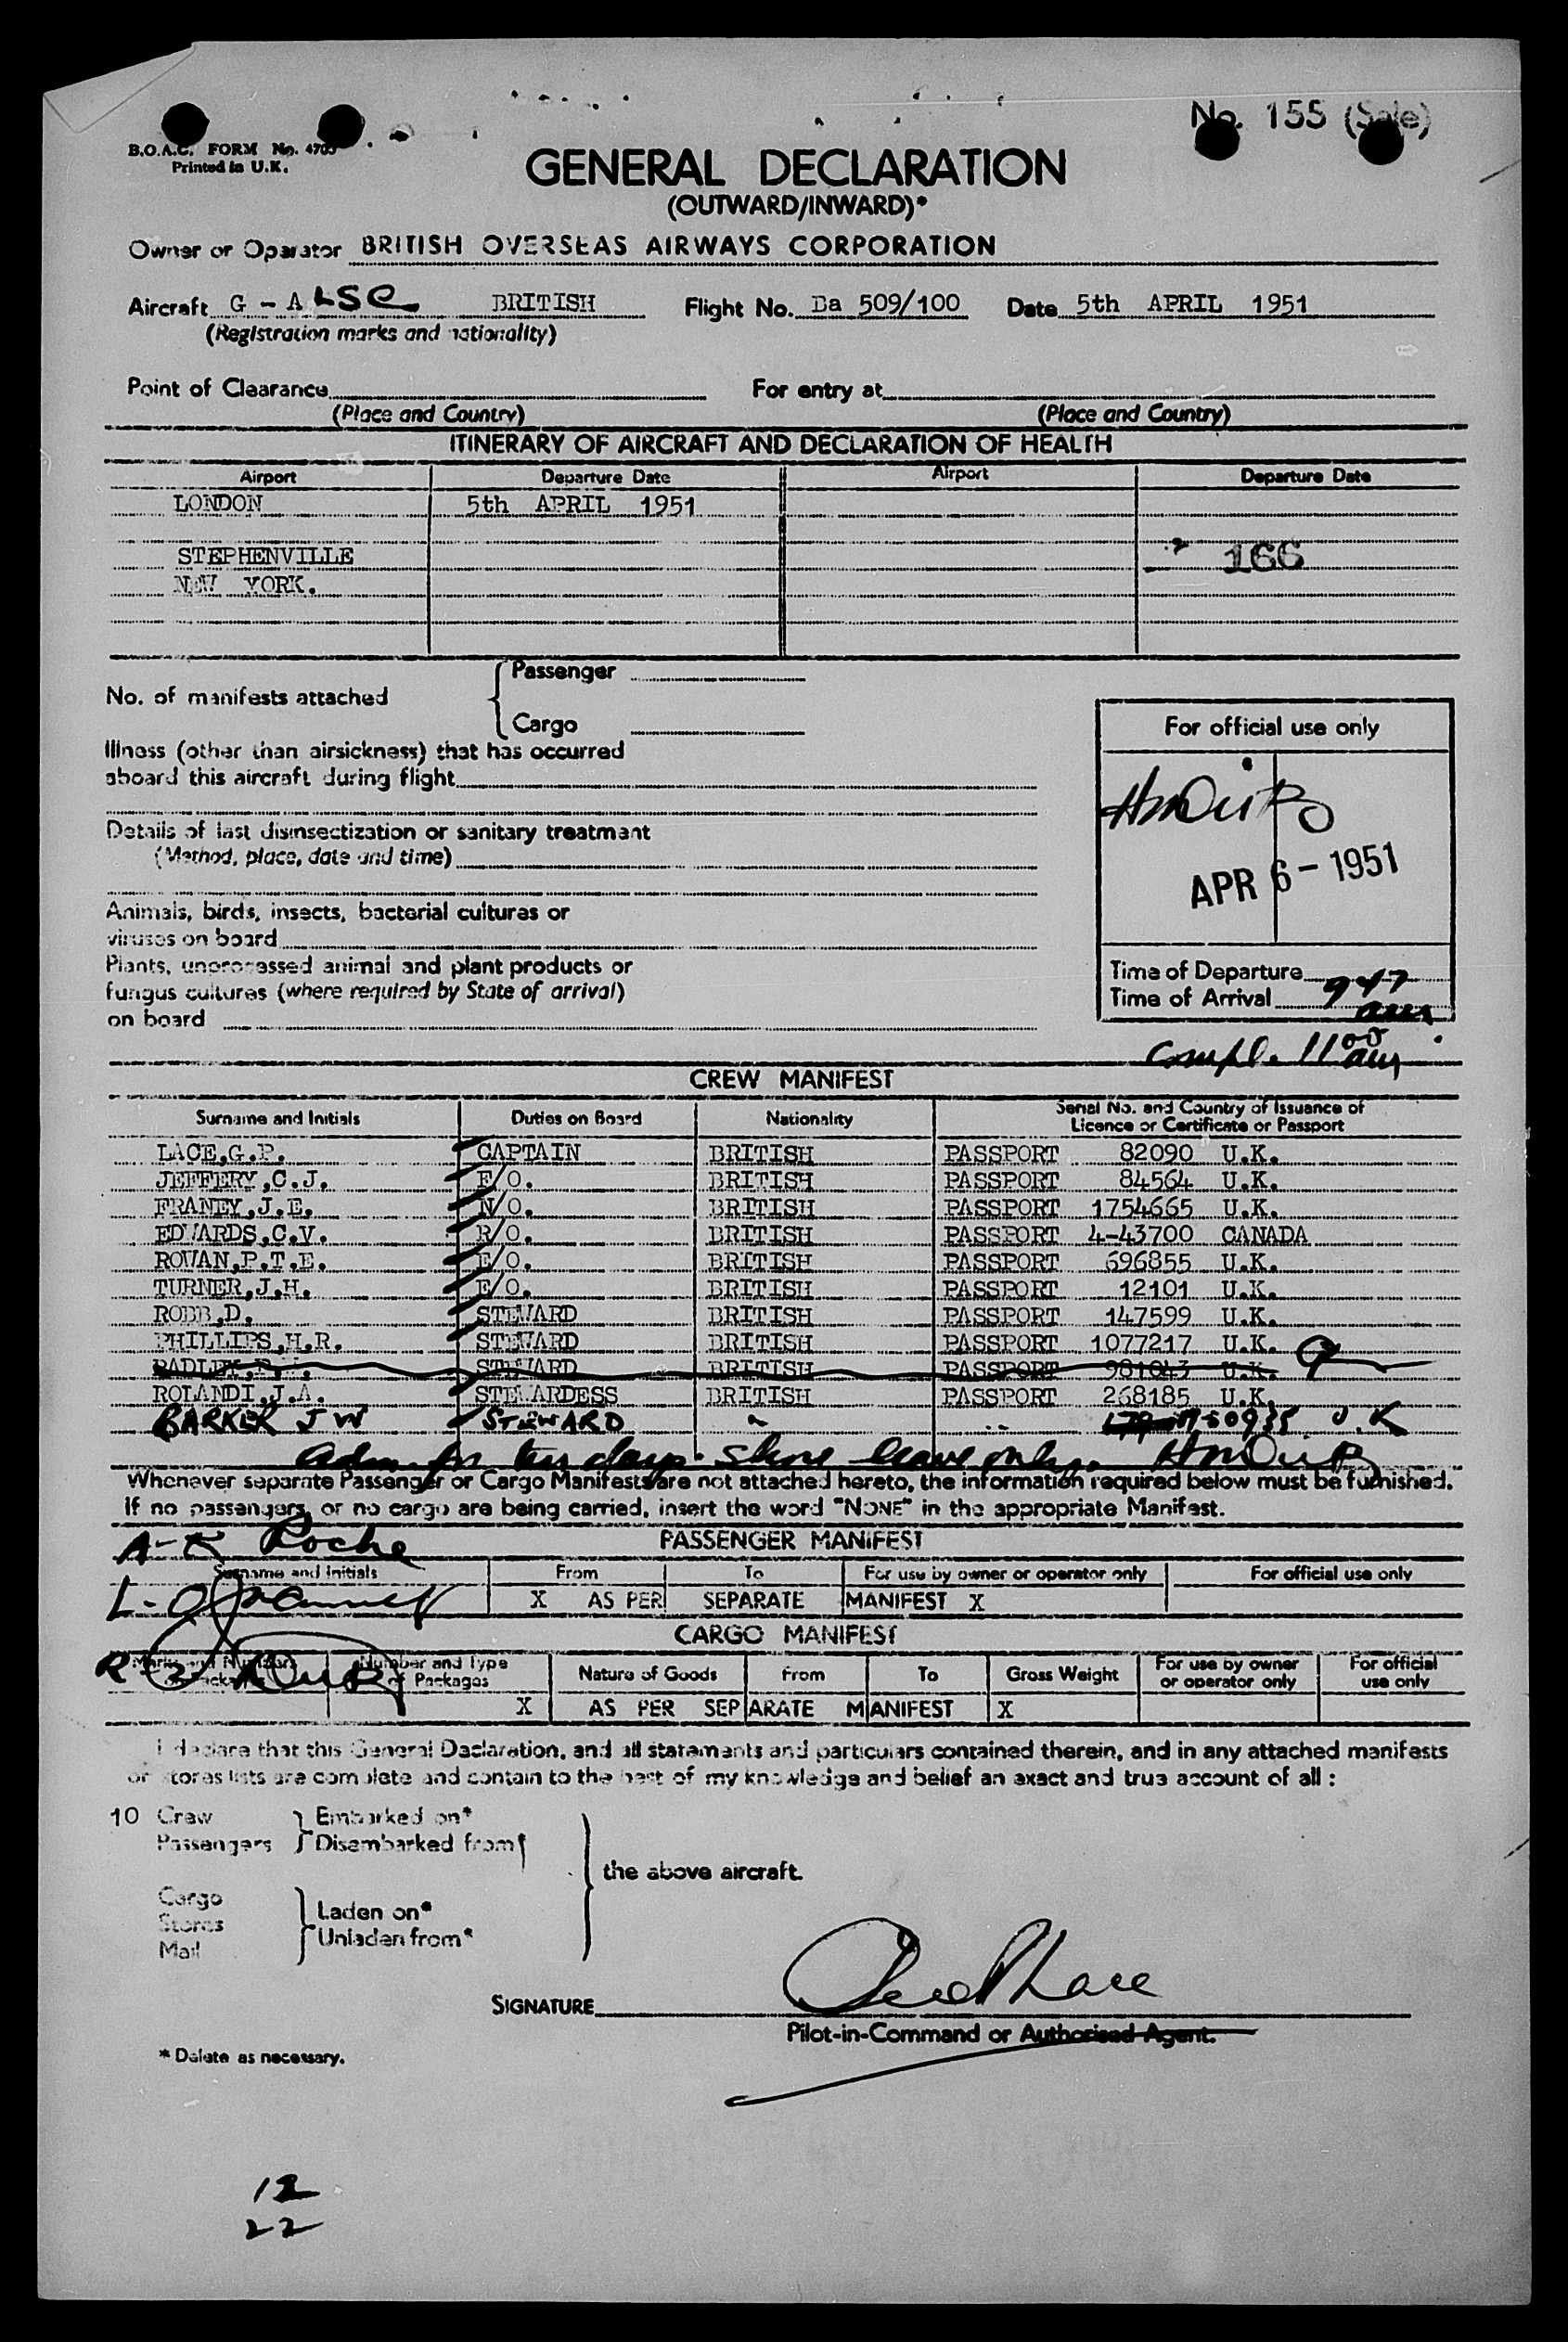 No. 155 (Sale)
B.O.A.C. FORM No. 4705
Printed in U.K.
GENERAL DECLARATION
(OUTWARD/INWARD)*
Owner or Operator BRITISH OVERSEAS AIRWAYS CORPORATION
Aircraft G - A LSC BRITISH Flight No. Ba 509/100 Date 5th APRIL 1951
(Registration marks and nationality)
Point of Clearance For entry at
(Place and Country) (Place and Country)
ITINERARY OF AIRCRAFT AND DECLARATION OF HEALTH
Airport Departure Date Airport Departure Date
LONDON 5th APRIL 1951
STEPHENVILLE 166
NEW YORK.
Passenger
No. of manifests attached
Cargo
For official use only
Illness (other than airsickness) that has occurred
aboard this aircraft during flight
Details of last disinsectization or sanitary treatment
(Method, place, date and time)
APR 6 - 1951
Animals, birds, insects, bacterial cultures or
viruses on board
Plants, unprocessed animal and plant products or
fungus cultures (where required by State of arrival)
on board
Time of Departure
Time of Arrival 947 am
Compl. 11 00 am
CREW MANIFEST
Surname and Initials Duties on Board Nationality Serial No. and Country of Issuance of Licence or Certificate or Passport
LACE,G.P. CAPTAIN BRITISH PASSPORT 82090 U.K.
JEFFERY,C.J. F/O. BRITISH PASSPORT 84564 U.K.
FRANEY,J.E. N/O. BRITISH PASSPORT 1754665 U.K.
EDWARDS,C.V. R/O. BRITISH PASSPORT 4-43700 CANADA
ROWAN,P.T.E. E/O. BRITISH PASSPORT 696855 U.K.
TURNER,J.H. E/O. BRITISH PASSPORT 12101 U.K.
ROBB,D. STEWARD BRITISH PASSPORT 147599 U.K.
PHILLIPS,H.R. STEWARD BRITISH PASSPORT 1077217 U.K.
STEWARD BRITISH PASSPORT 981043 U.K.
ROLANDI,J.A. STEWARDESS BRITISH PASSPORT 268185 U.K.
BARKER J W STEWARD " " U.K
Adm. for ten days shore leave only.
Whenever separate Passenger or Cargo Manifests are not attached hereto, the information required below must be furnished.
If no passengers, or no cargo are being carried, insert the word "NONE" in the appropriate Manifest.
A-K Roche
PASSENGER MANIFEST
Surname and Initials From To For use by owner or operator only For official use only
L-Q
X AS PER SEPARATE MANIFEST X
CARGO MANIFEST
R-Z
Marks and Numbers Number and Type of Packages Nature of Goods From To Gross Weight For use by owner or operator only For official use only
X AS PER SEPARATE MANIFEST X
I declare that this General Declaration, and all statements and particulars contained therein, and in any attached manifests
or stores lists are complete and contain to the best of my knowledge and belief an exact and true account of all :
10 Crew Embarked on*
Passengers Disembarked from*
the above aircraft.
Cargo
Stores Laden on*
Mail Unladen from*
SIGNATURE
Pilot-in-Command or Authorised Agent.
* Delete as necessary.
12
22